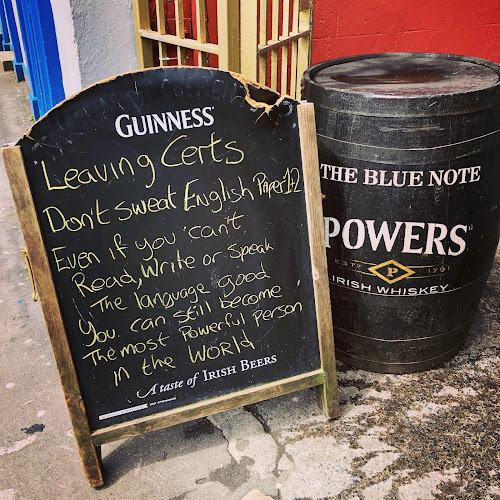 GUINNESS
Leaving Certs
Don't sweat English Paper 1+2
Even if you can't
Read, Write or Speak
The language good
You can still become
The most Powerful Person
in the World
A taste of IRISH BEERS
THE BLUE NOTE
POWERS
ESTD 1791
P
IRISH WHISKEY